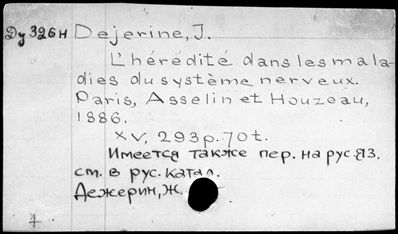 Dy 326н Dejerine, J.
L'hérédité dans les mala-
dies du système nerveux.
Paris, Asselin et Houzeau,
1886.
XV, 293 p. 70 t.
Имеется также пер. на рус. яз.
см. в рус. катал.
Дежерин, Ж.